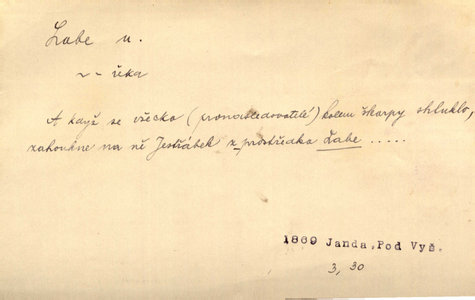 Labe n.
~ - řeka
A když se všecko (pronásledovatelé) kolem škarpy shluklo,
zahoukne na ně Jestřábek z prostředka Labe .....
1869 Janda, Pod Vyš.
3, 30